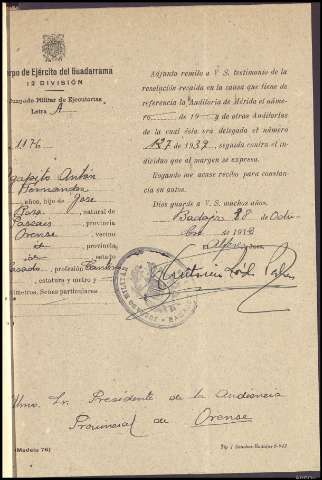 rpo de Ejército del Guadarrama
12 DIVISIÓN
Juzgado Militar de Ejecutorias
Letra A
1176
Agapito Antón
Hernandez
años, hijo de Jose
Rosa, natural de
Passais, provincia
Orense, vecino
id, provincia,
id, estado
casado, profesión
, estatura y metro y
límetros. Señas particulares
Adjunto remito a V. S. testimonio de la
resolución recaída en la causa que tiene de
referencia la Auditoría de Mérida el núme-
ro de 19 y de otras Auditorías
de la cual ésta sea delegada el número
127 de 1939, seguida contra el in-
dividuo que al margen se expresa.
Rogando me acuse recibo para constan-
cia en autos.
Dios guarde a V. S. muchos años.
Badajoz 28 de Octu-
bre de 1942
El Alférez
Ilmo. Sr. Presidente de la Audiencia
Provincial de Orense
(Modelo 76)